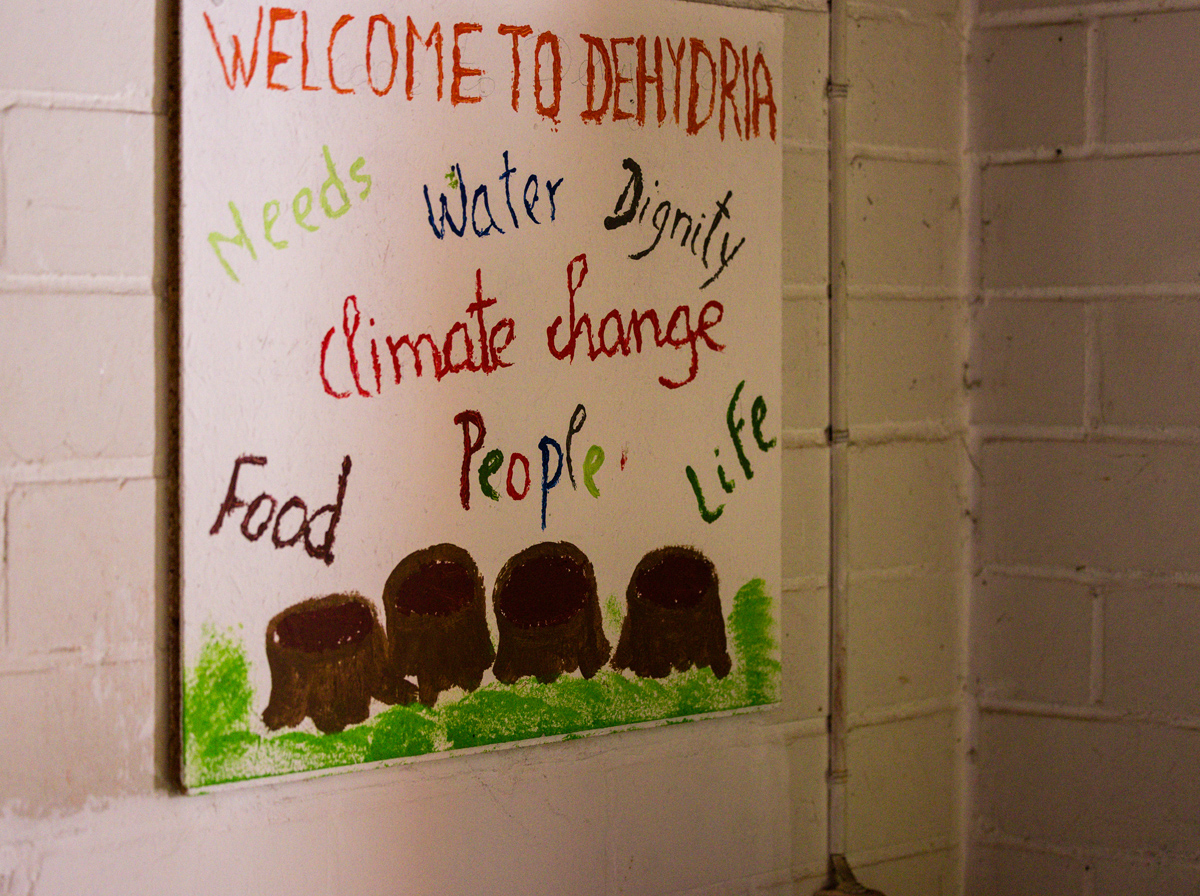 WELCOME TO DEHYDRIA
Needs Water Dignity
Climate change
People Life
Food